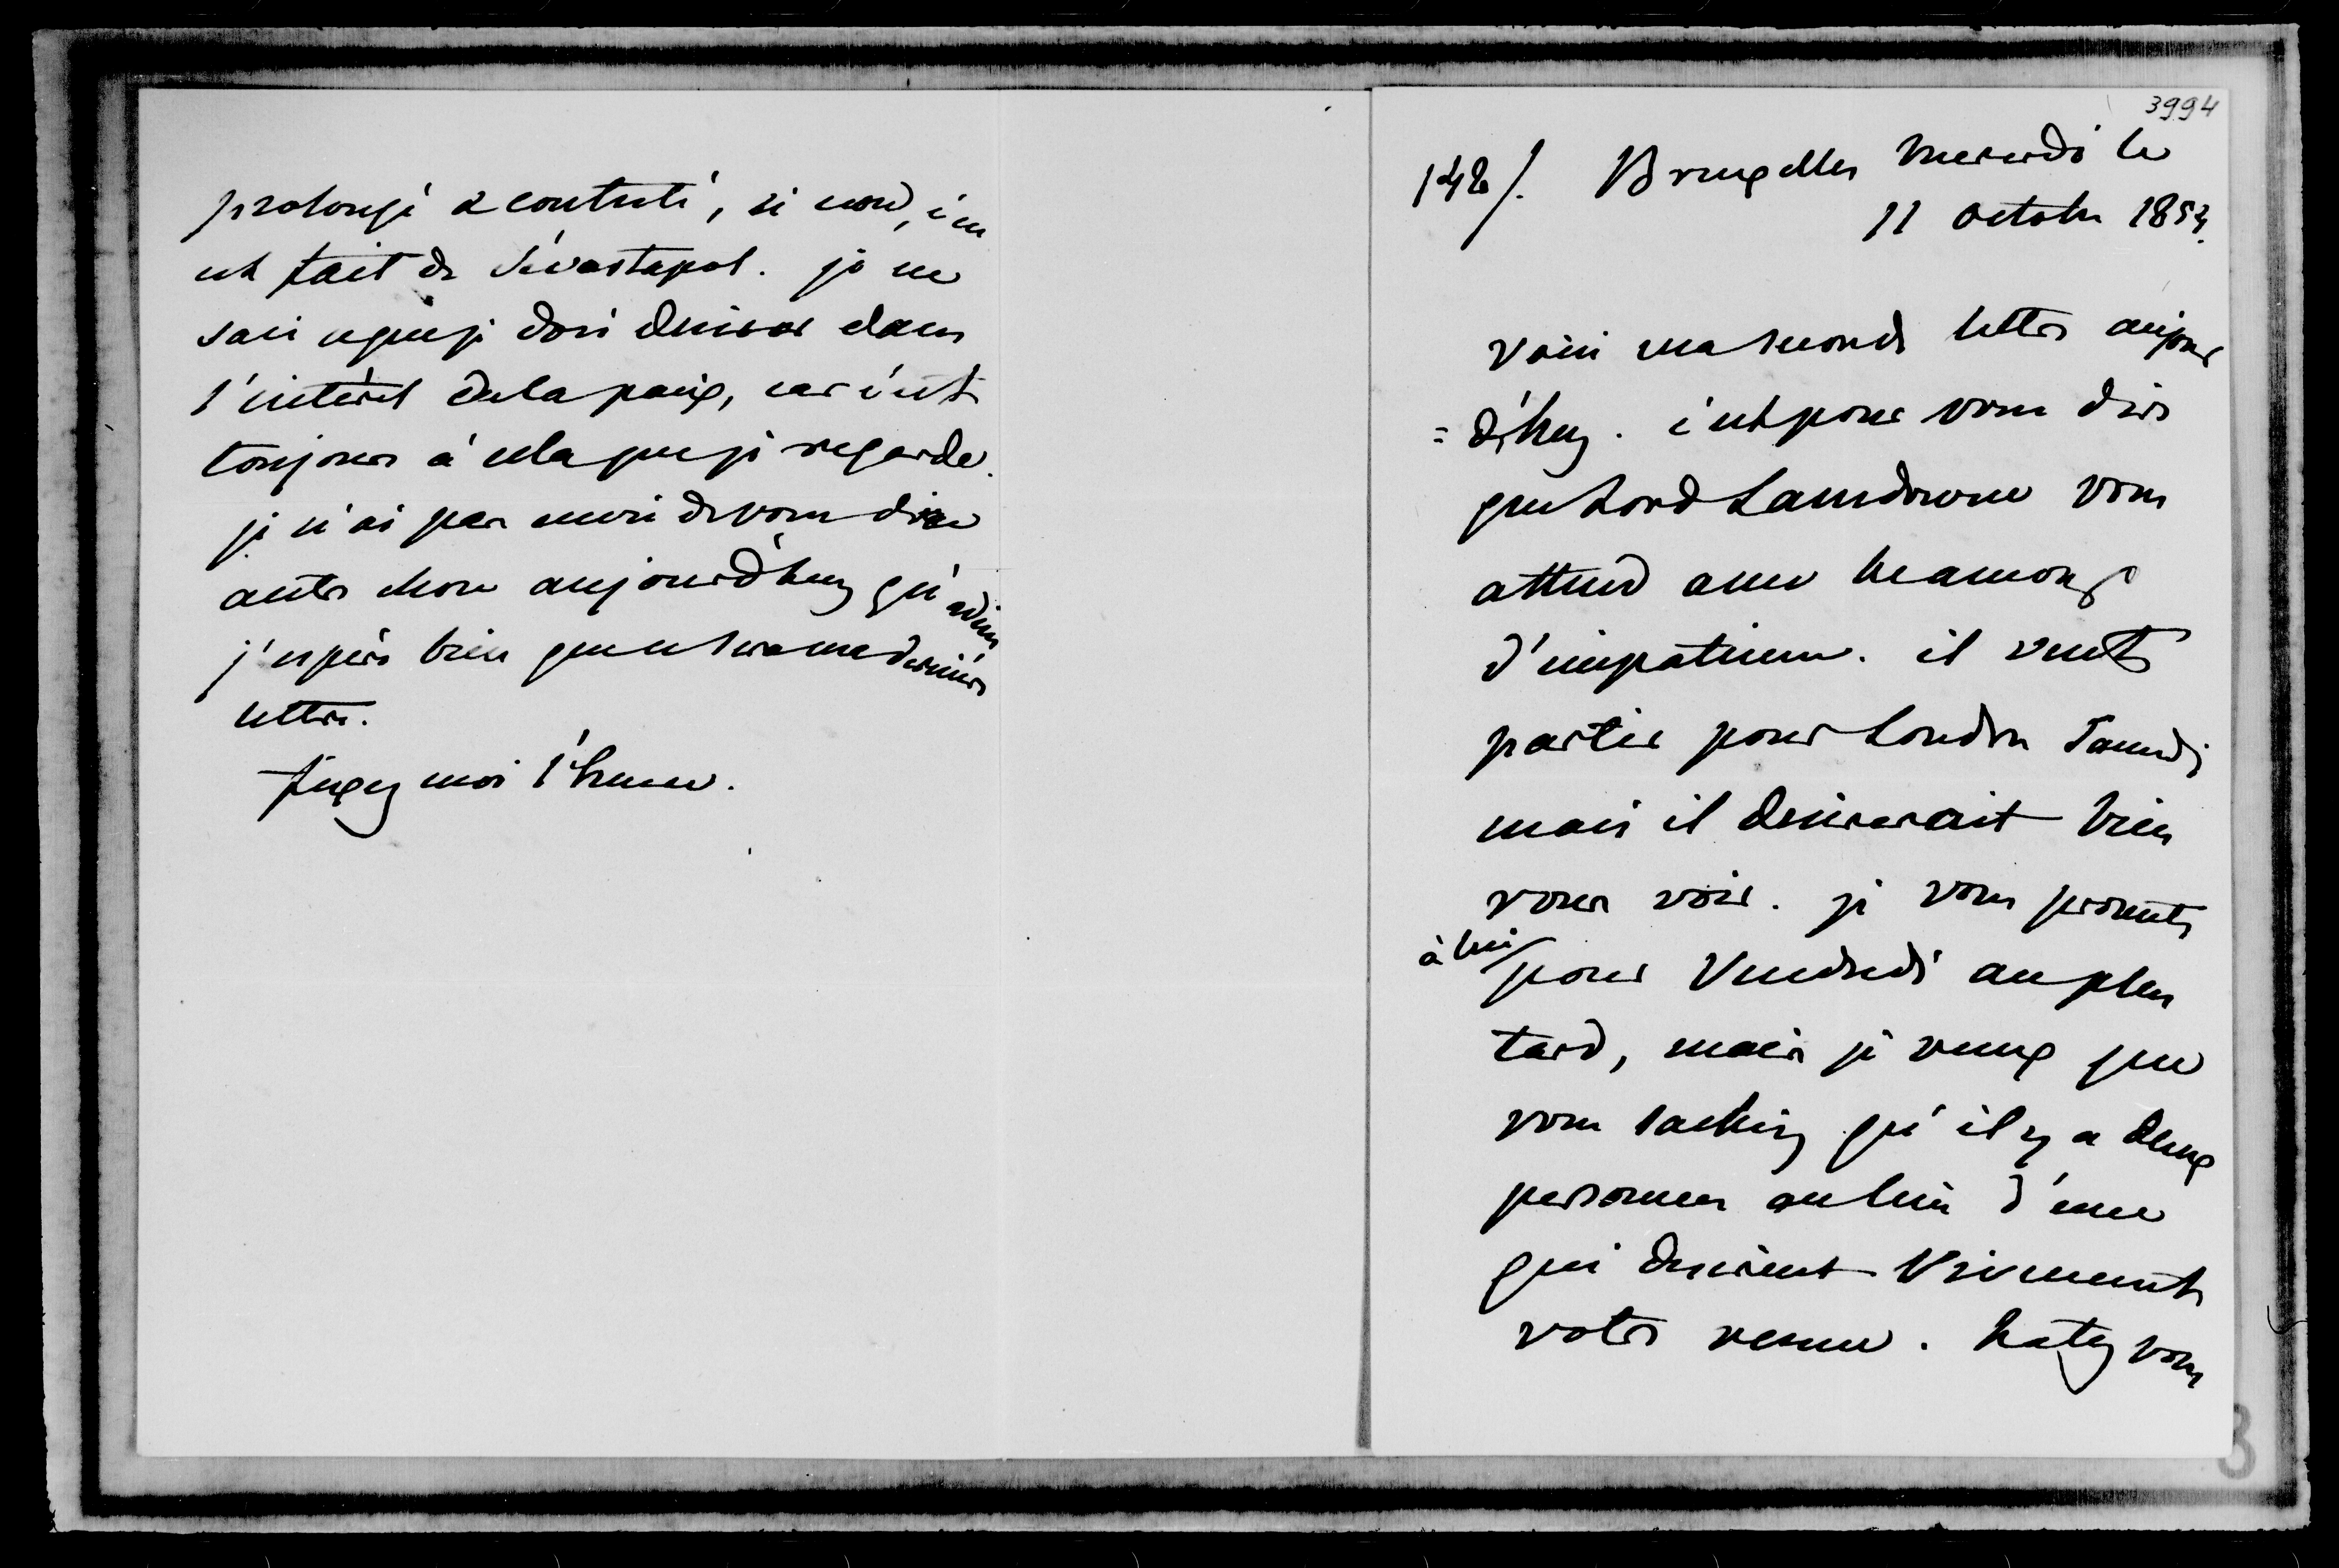 prolongé & contesté, si non, c'en
est fait de Sévastopol. je ne
sais ce que je dois desirer dans
l'intérêt de la paix, car c'est
toujours à cela que je regarde.
je n'ai pas envie de vous dire
autre chose aujourd'huy qu'adieu
j'espère bien que ce sera ma dernière
lettre.
fixez moi l'heure.
3994
142/. Bruxelles Mercredi le
11 octobre 1854.
Voici ma seconde lettre aujour
=d'huy. c'est pour vous dire
que Lord Lansdowne vous
attend avec beaucoup
d'impatience. il veut
partir pour Londres Samedi
mais il desirerait bien
vous voir. je vous promets
à lui/ pour Vendredi au plus
tard, mais je veux que
vous sachiez qu'il y a deux
personnes au lieu d'une
qui desirent Vivement
votre venue. hatez vous
3